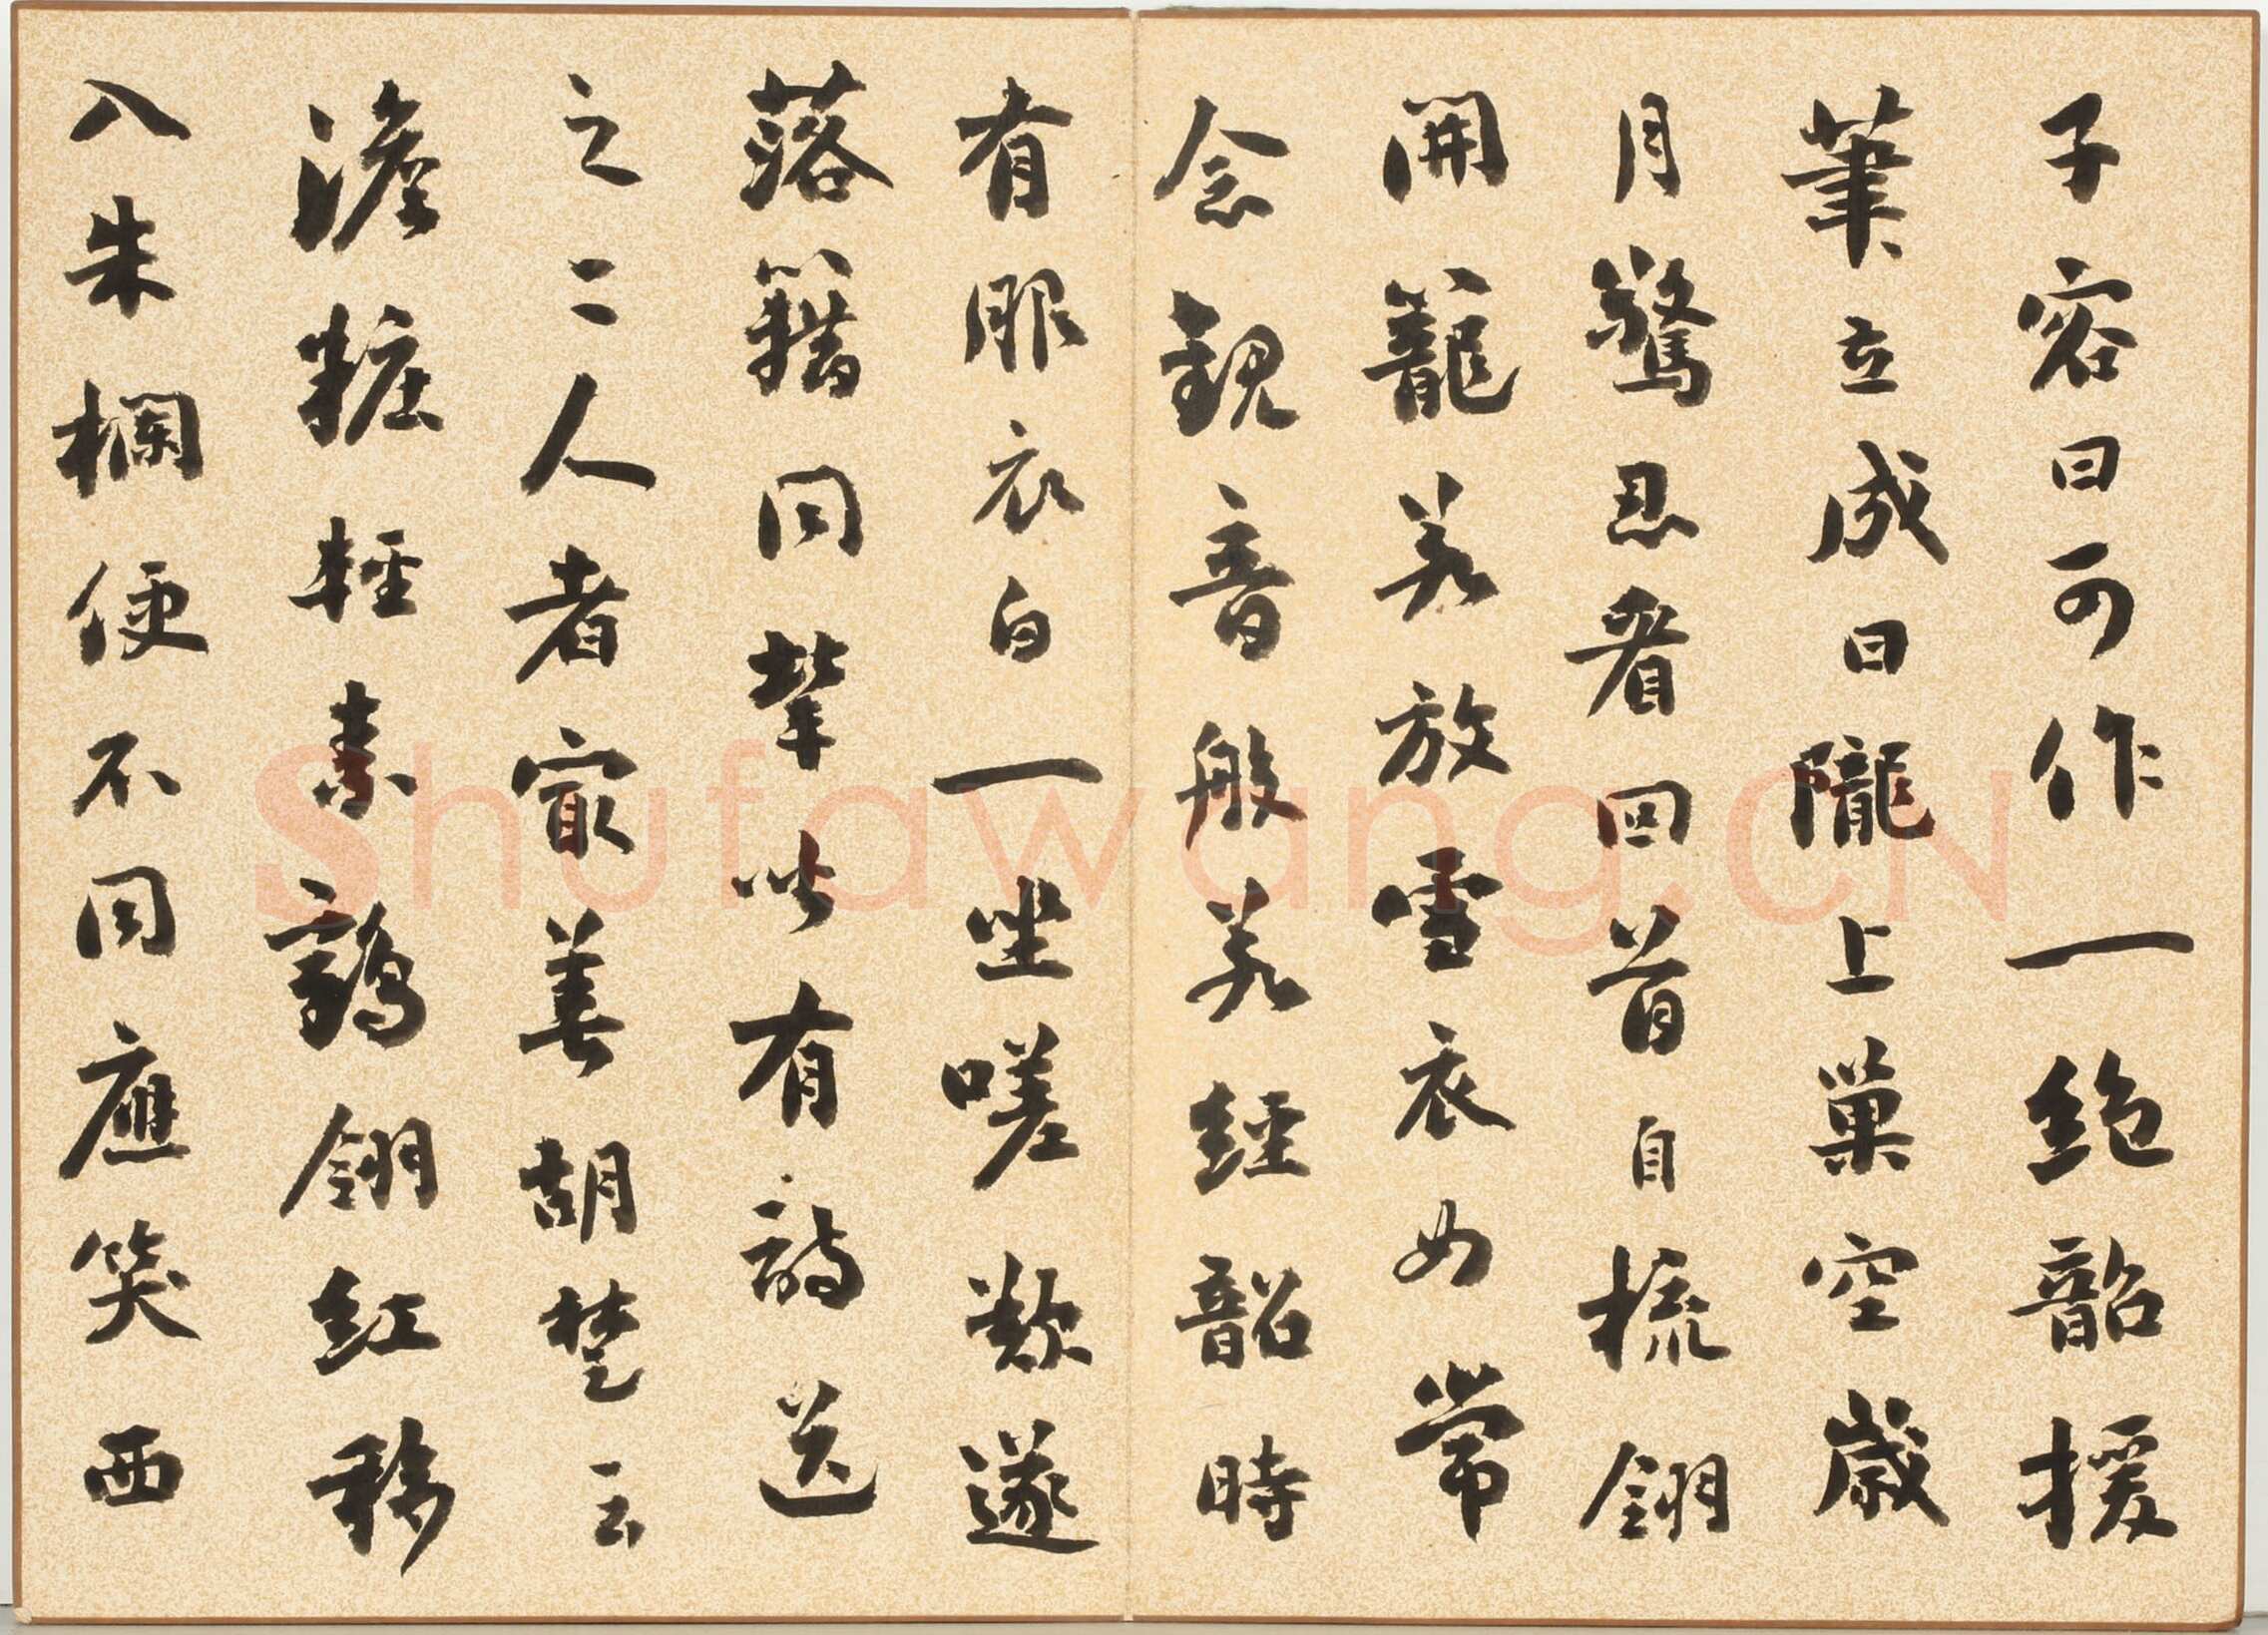 子容曰可作一絶韶援
筆立成曰隴上巢空歲
月驚忍看回首自梳翎
開籠若放雪衣女常
念觀音般若經韶時
有服衣白一坐嗟歎遂
落籍同輦皆有詩送
之二人者最善胡楚云
澹粧輕素鶴翎紅移
入朱欄便不同應笑西
Shufawang.CN